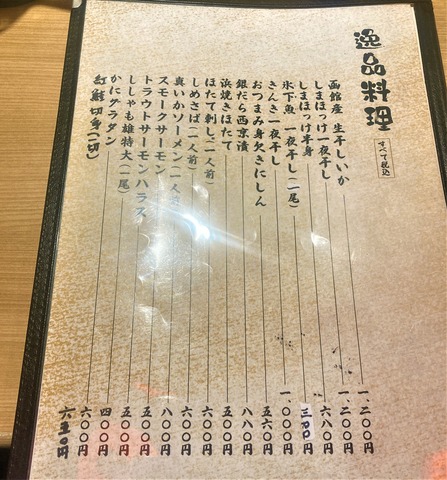 逸品料理
すべて税込
函館産 生干しいか 一、二〇〇円
しまほっけ一夜干し 一、二〇〇円
しまほっけ半身 六八〇円
氷下魚 一夜干し(一尾)
きんき一夜干し 一、〇〇〇円
おつまみ身欠きにしん 五六〇円
銀だら西京漬 八八〇円
浜焼きほたて 五〇〇円
ほたて刺し(一人前) 六〇〇円
しめさば(一人前) 六〇〇円
真いかソーメン(一人前) 八〇〇円
スモークサーモン 五〇〇円
トラウトサーモンハラス 五〇〇円
ししゃも雄特大(一尾) 四〇〇円
かにグラタン 六〇〇円
紅鮭切身(一切) 六五〇円